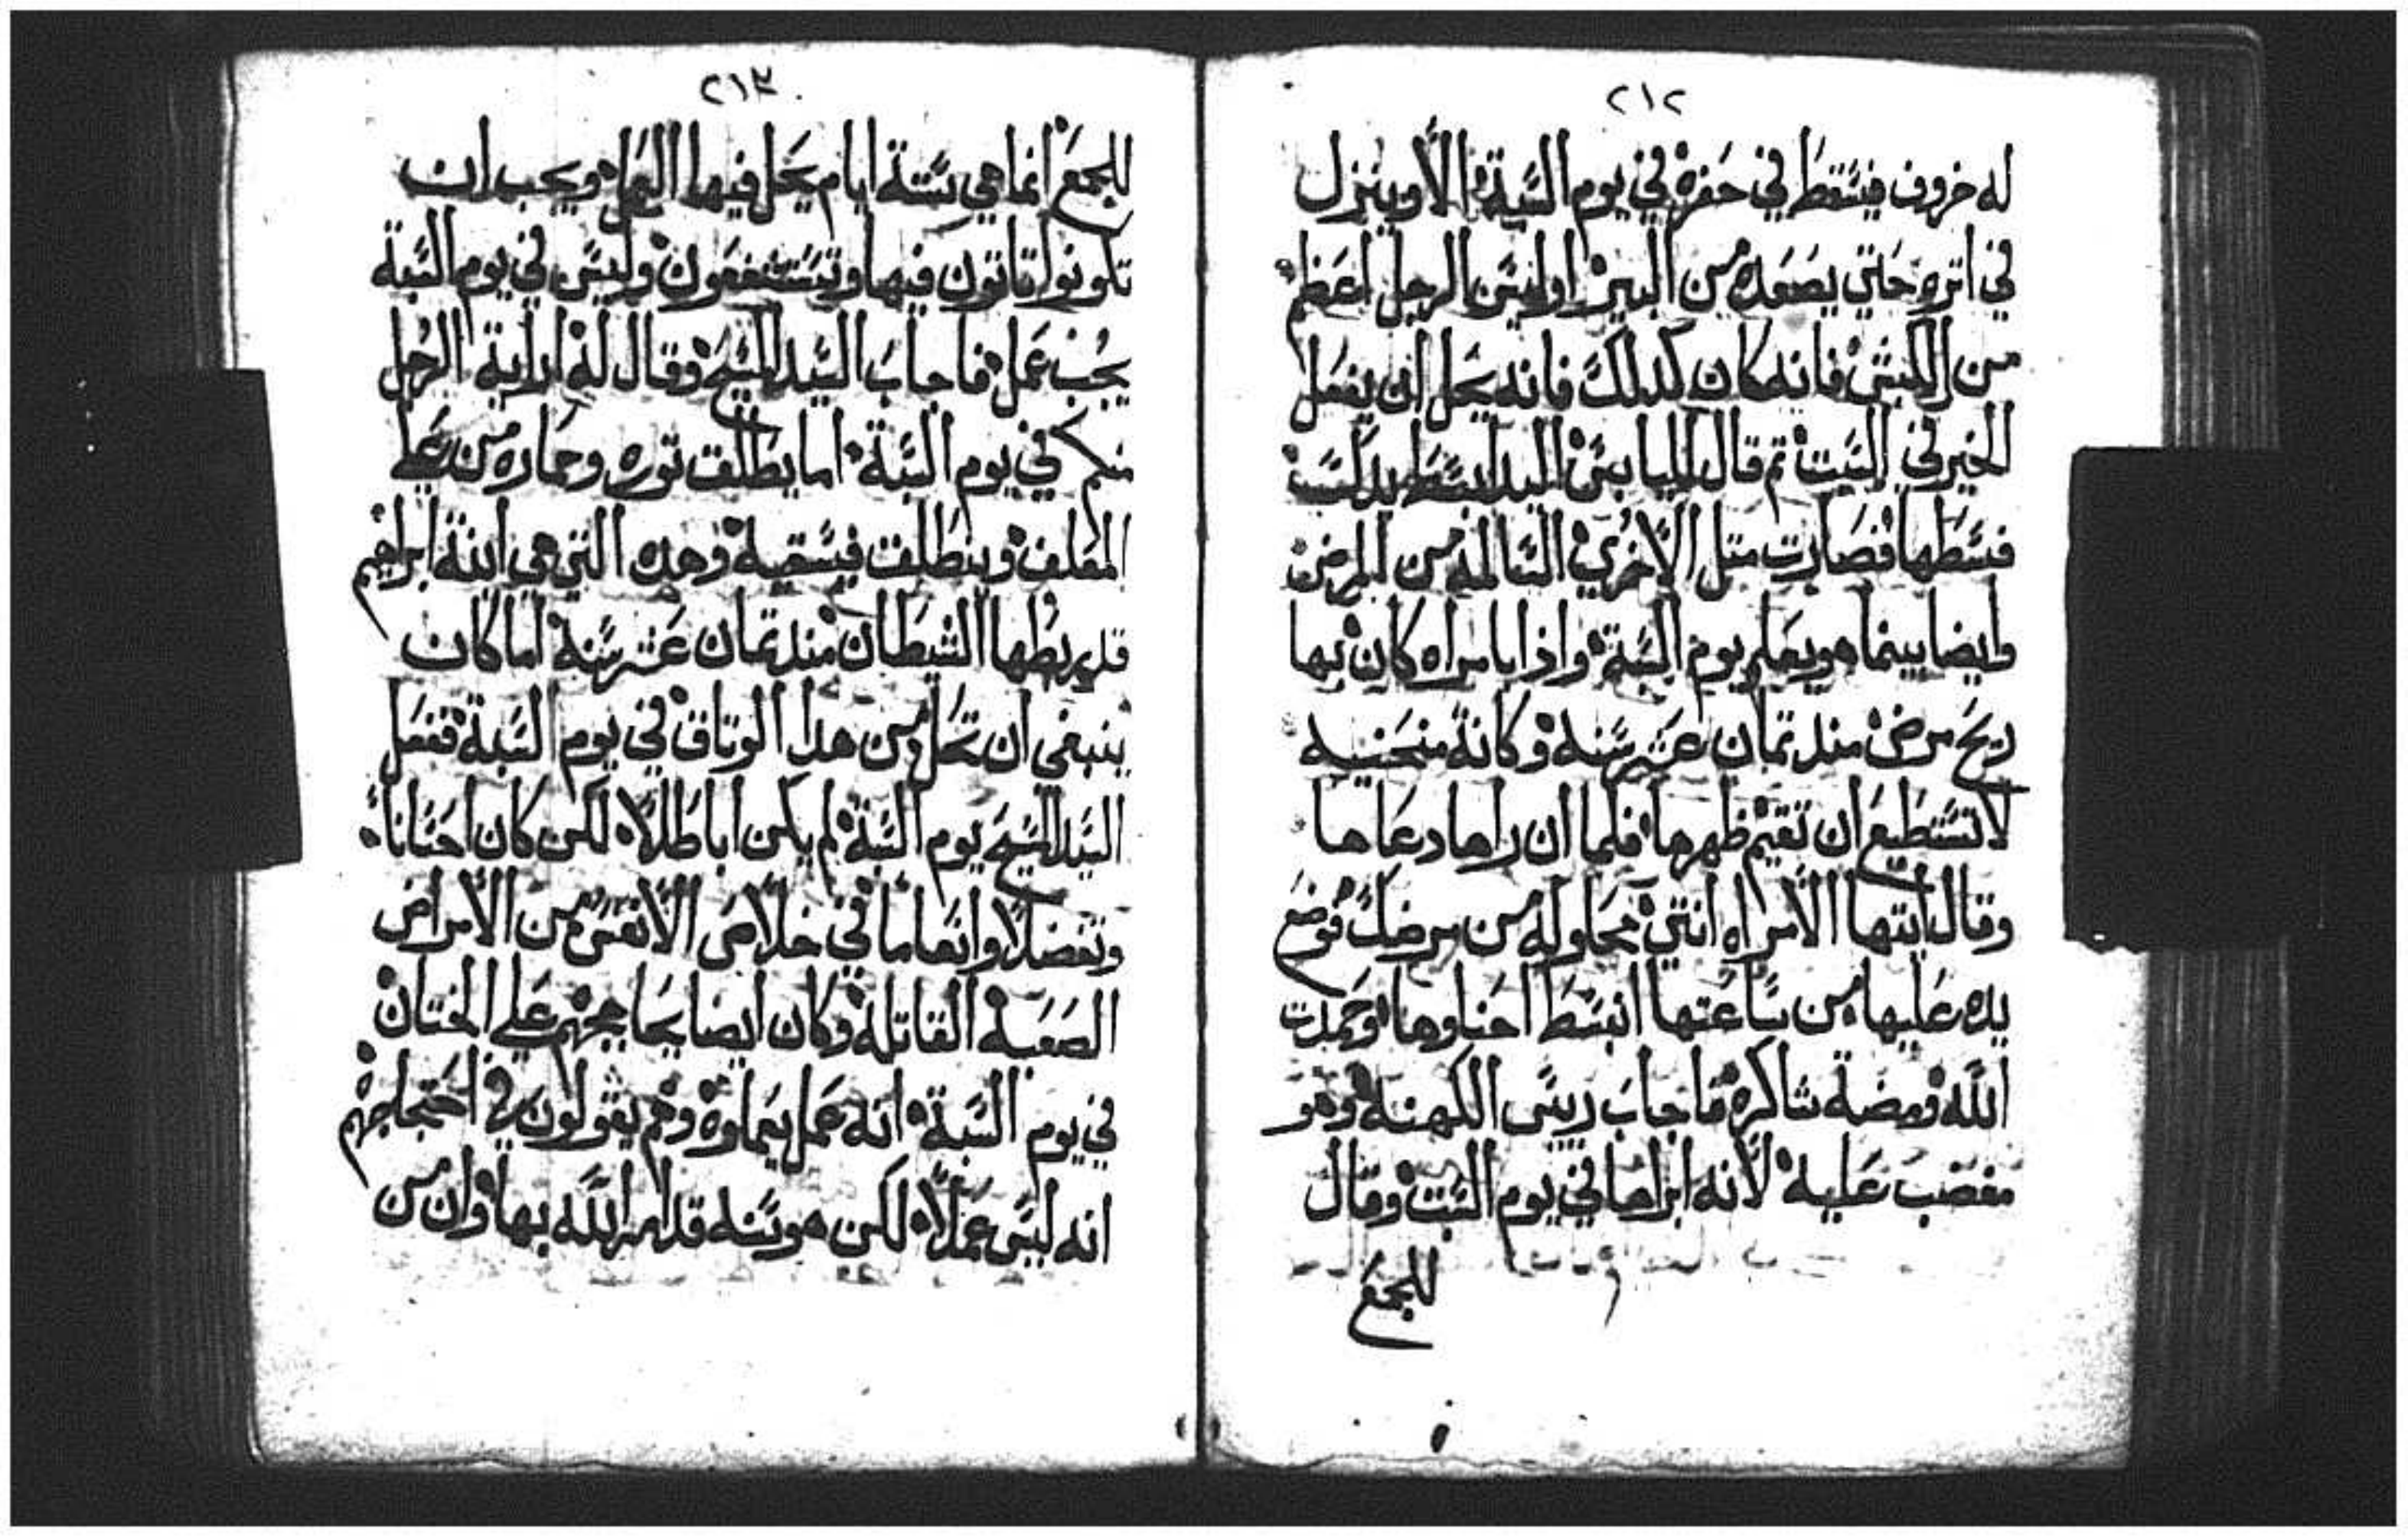 ٢١٢
له خروف فيسقط في حفره في يوم السبة الا وينزل
في اتره حتي يصعده من البير اوليس الرجل اعظم
من الكبش فانه كان كدلك فانه يحل ان يفعل
الخير في السبت تم قال لليابس اليد ابسط يدك
فبسطها فصارت متل الاخري السالمه من المرض
وايضا بينما هو يعلم يوم السبة واذا بامراه كان بها
ريح مرض مند تمان عشر سنه وكانة منحنيه
لا تستطيع ان تقيم ظهرها فلما ان راها دعاها
وقال ايتها الامراه انتي محاوله من مرضك فوضع
يده عليها من ساعتها انبسط احناوها وحمدت
الله ومضة شاكره فاجاب ريس الكهنه وهو
مغضب عليه لانه ابراها في يوم السبت وقال
للجمع
٢١٣
للجمع انما هي ستة ايام يحل فيها العمل ويجب ان
تكونوا تاتون فيها وتستشفعون وليس في يوم السبة
يجب عمل فاجاب السيد المسيح وقال له اراية الرجل
منكم في يوم السبة اما يطلق توره وحماره من علي
المعلف وينطلق فيسقيه وهده التي هي ابنة ابراهيم
قد ربطها الشيطان مند تمان عشر سنه اما كان
ينبغي ان تحل من هدا الوتاق في يوم السبة ففعل
السيد المسيح يوم السبة لم يكن اباطلا لكن كان احسانا
وتفضلا وانعاما في خلاص الانفس من الامراض
الصعبه القاتله وكان ايضا يحاججهم علي الختان
في يوم السبة انه عمل يعملوه وهم يقولون في احتجاجهم
انه ليس عملا لكن هو سنه قد امر الله بها وان من